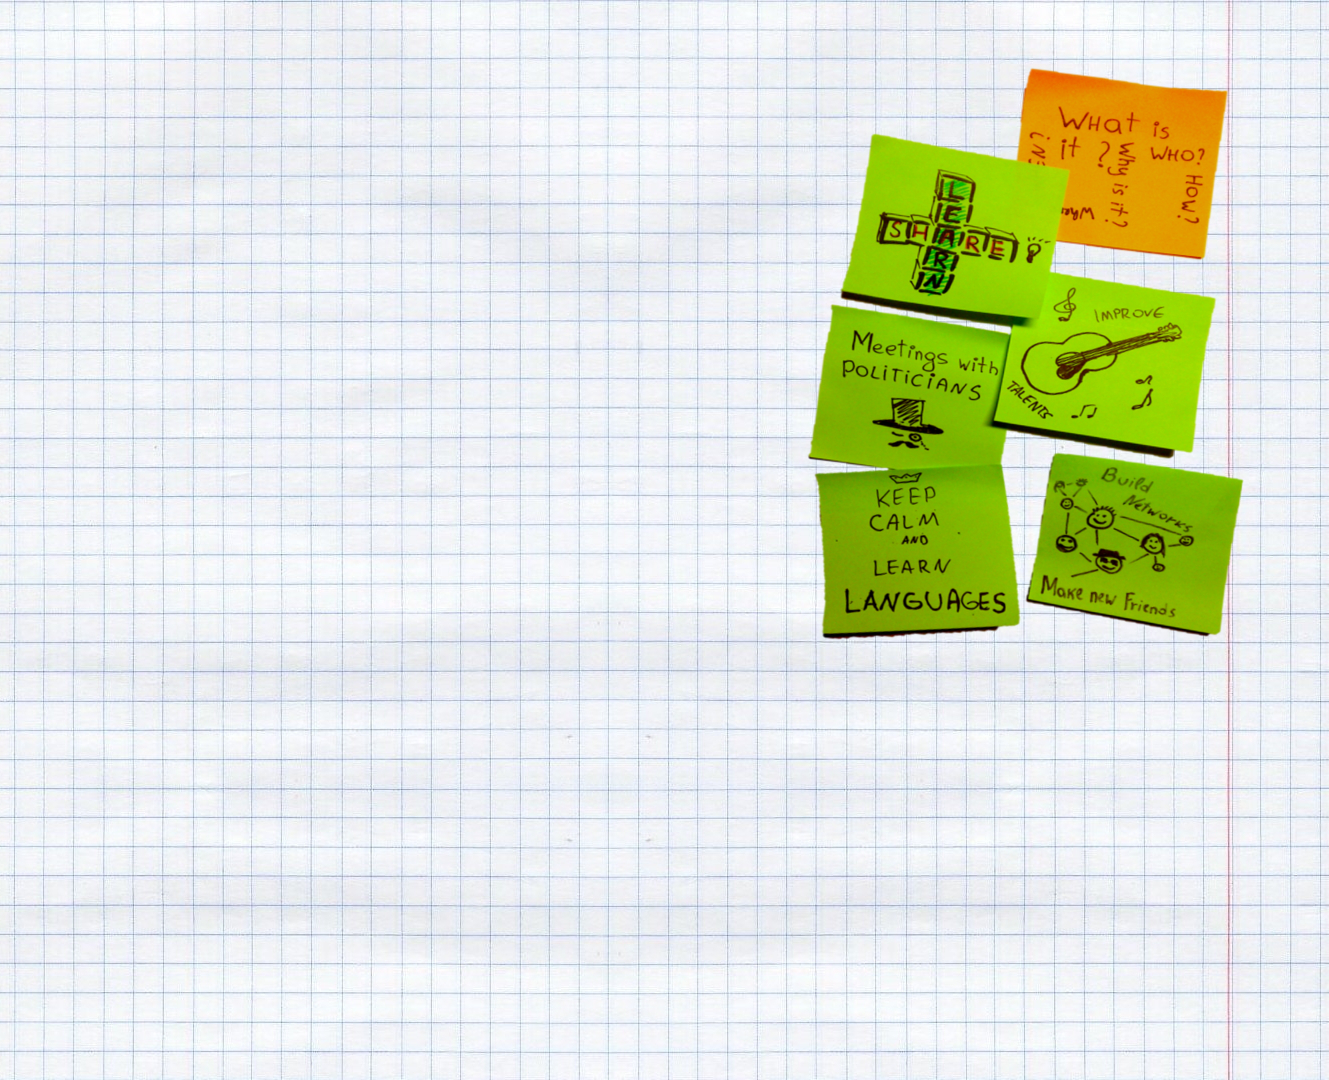 What is
it?
WHO?
Why is it?
How?
LEARN
SHARE
IMPROVE
TALENTS
Meetings with
POLITICIANS
KEEP
CALM
AND
LEARN
LANGUAGES
Build
Networks
Make new Friends